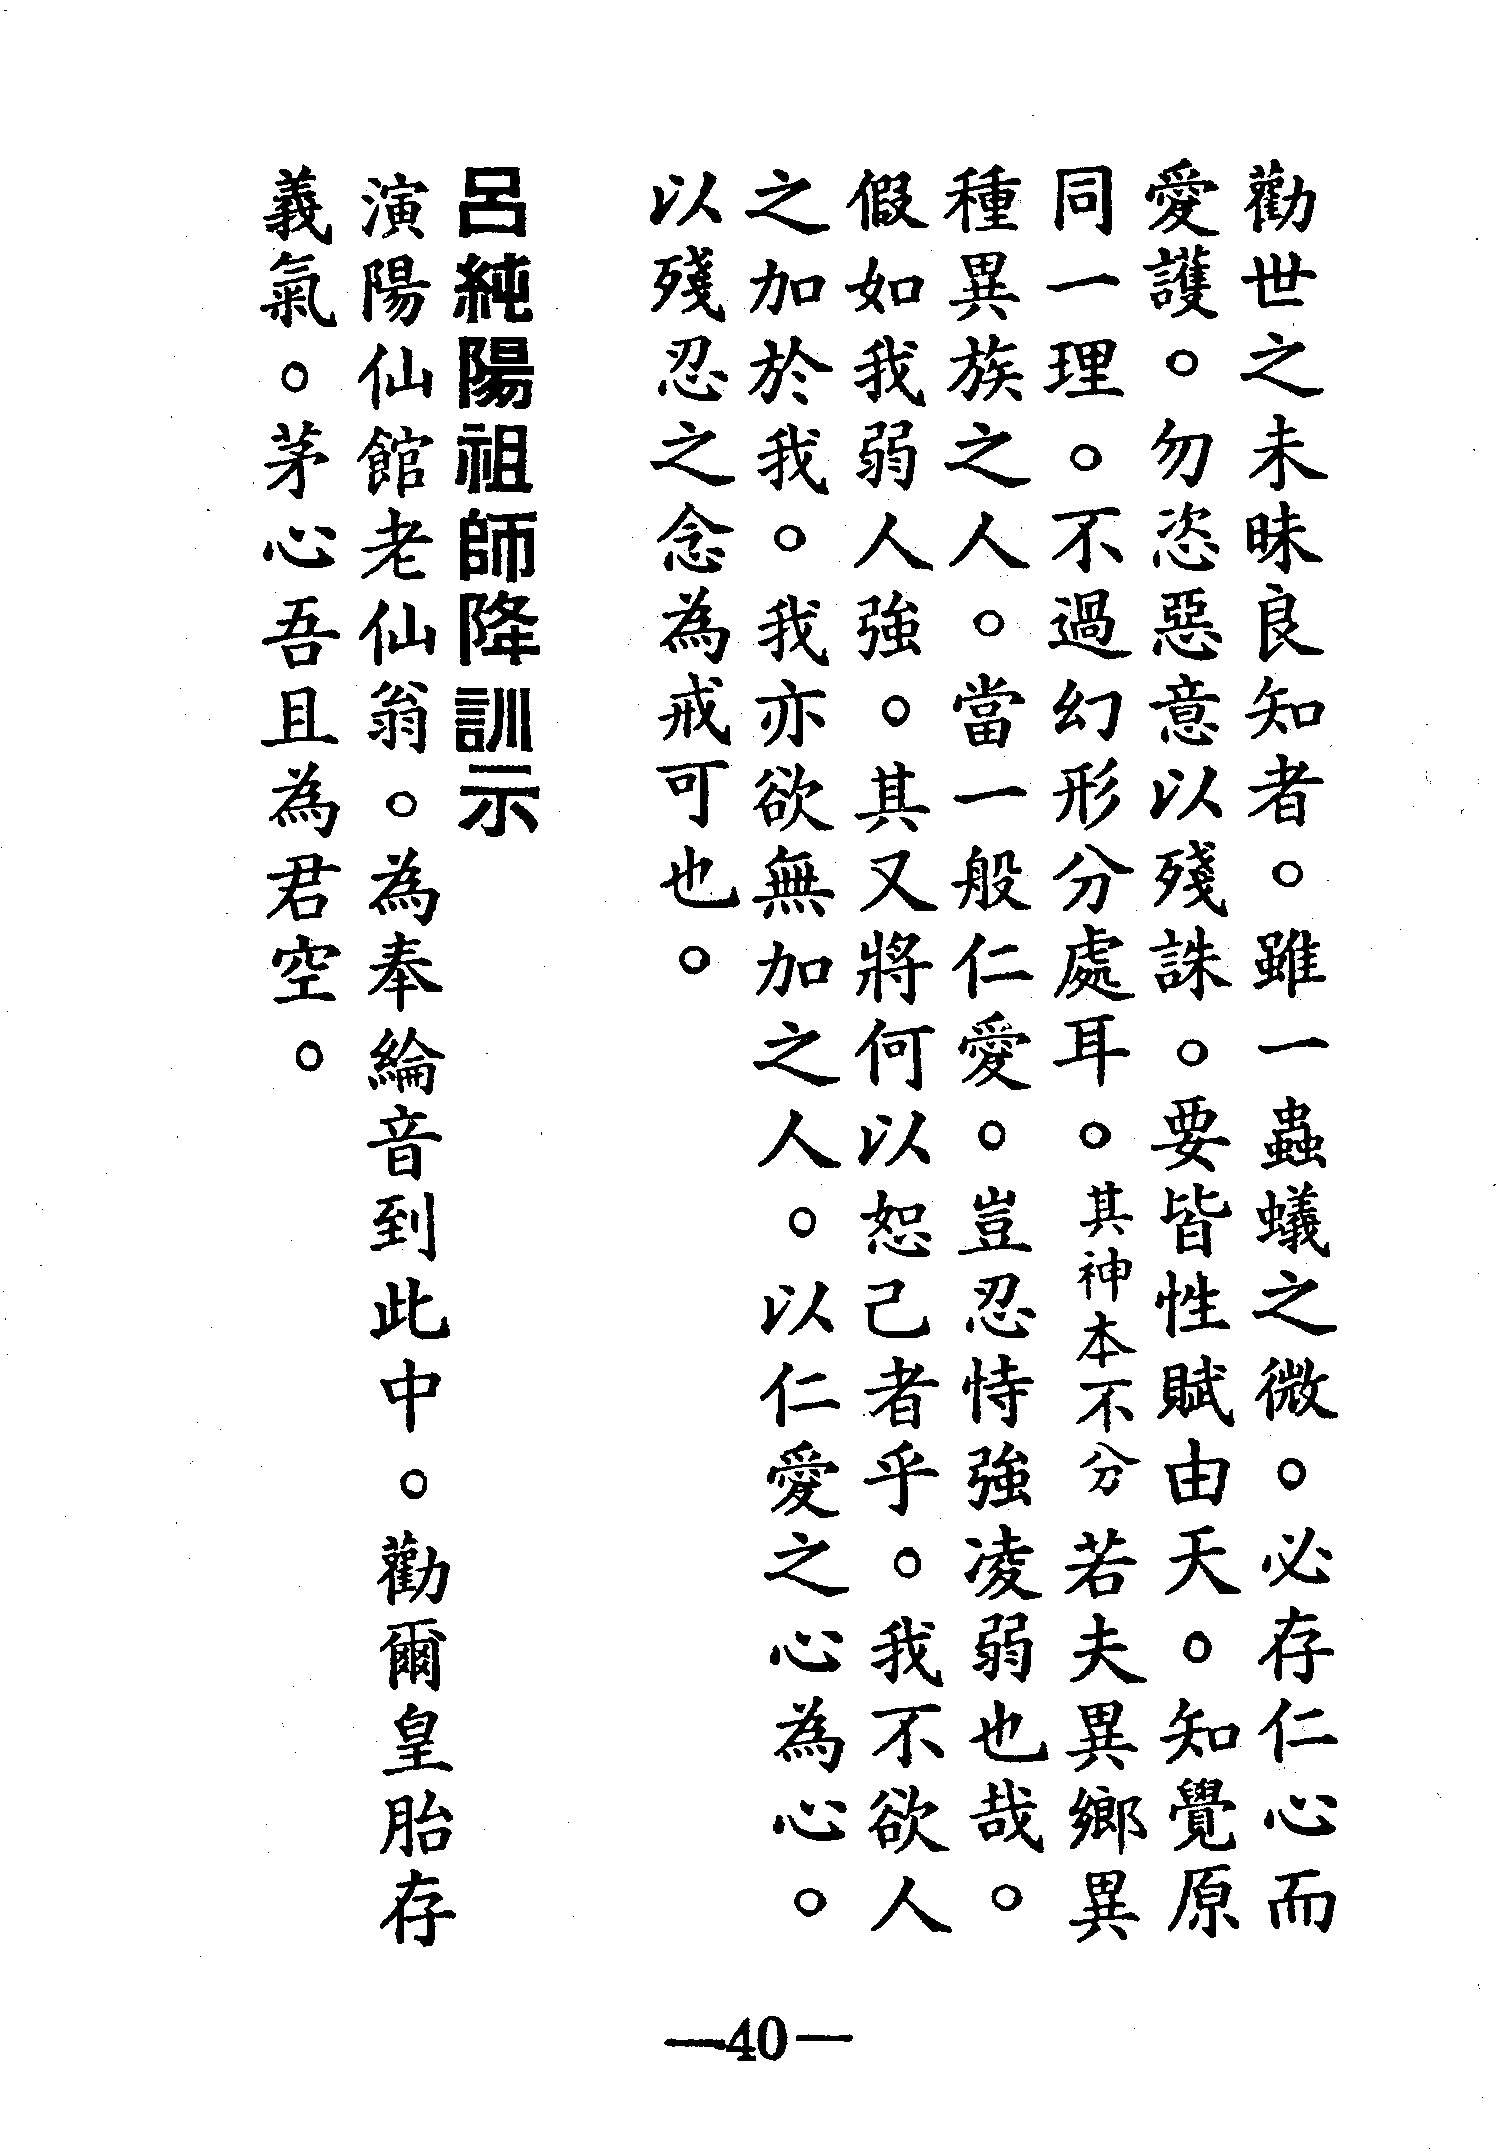 勸世之未昧良知者。雖一蟲蟻之微。必存仁心而
愛護。勿恣惡意以殘誅。要皆性賦由天。知覺原
同一理。不過幻形分處耳。其神本不分若夫異鄉異
種異族之人。當一般仁愛。豈忍恃強凌弱也哉。
假如我弱人強。其又將何以恕己者乎。我不欲人
之加於我。我亦欲無加之人。以仁愛之心為心。
以殘忍之念為戒可也。
呂純陽祖師降訓示
演陽仙館老仙翁。為奉綸音到此中。勸爾皇胎存
義氣。茅心吾且為君空。
—40—